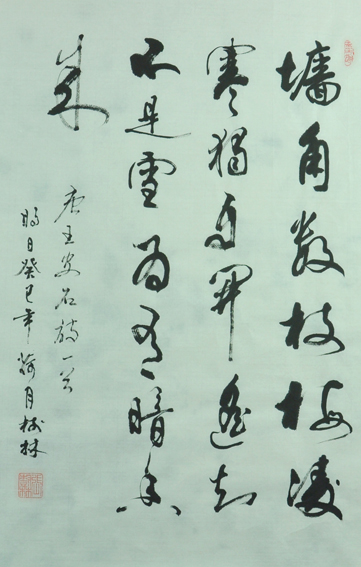 墙角数枝梅凌
寒独自开遥知
不是雪为有暗香
来
唐王安石诗一首
旸日癸巳年荷月树林